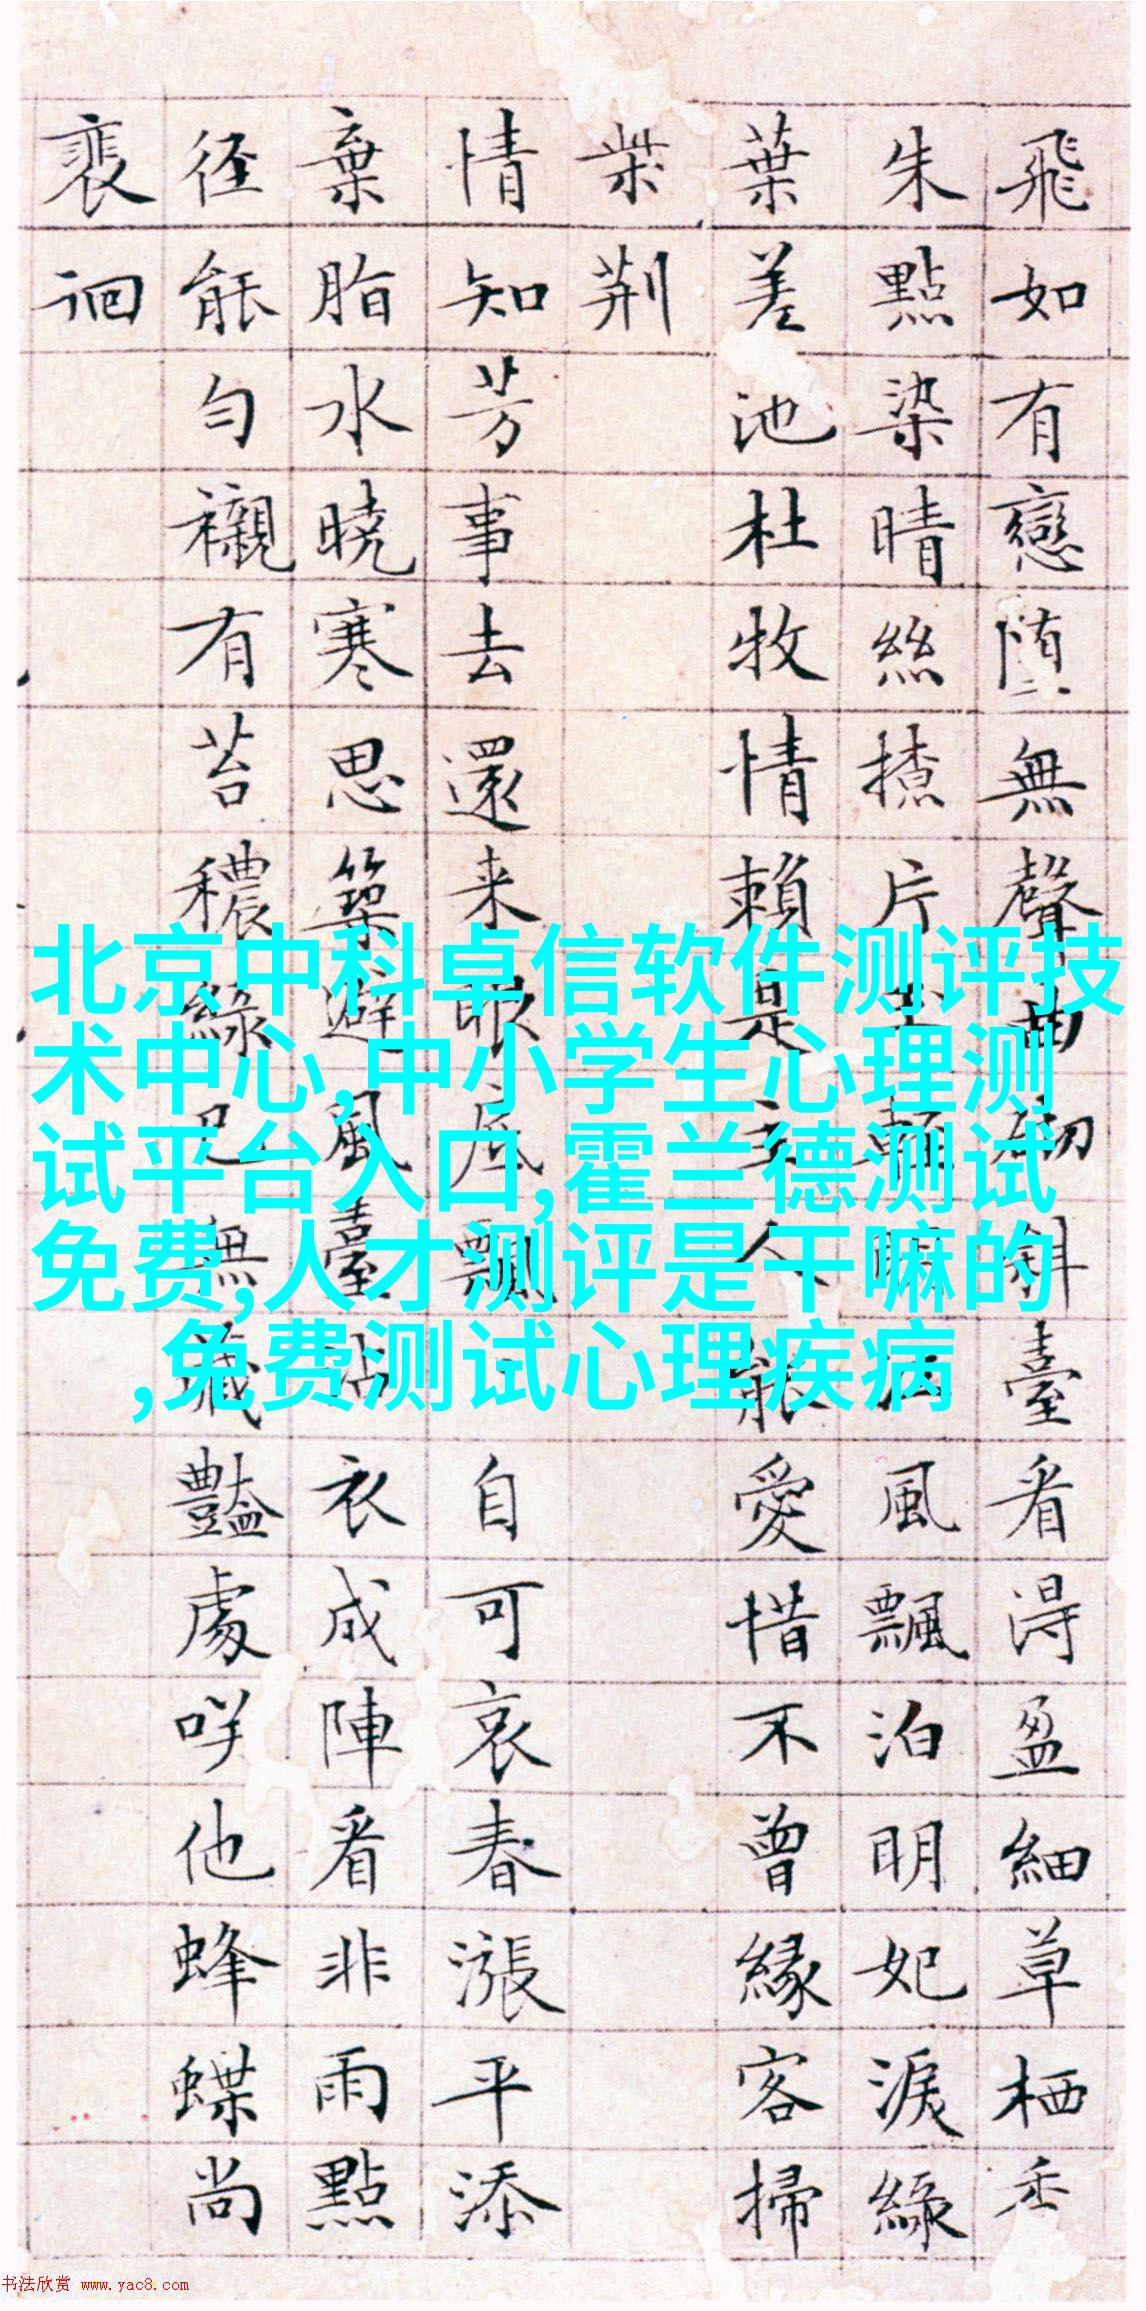 飛如有戀墮無聲曲砌斜臺看得盈細草栖香
朱點染晴絲片風飄泊明妃淚綠
葉差池杜牧情賴是主人能愛惜不曾緣客掃
柴荆
情知芳事去還来眼底飄自可哀春漲平添
棄脂水曉寒思築避風臺沾衣成陣看非雨點
徑能勻襯有苔穠綠已無藏豔處咲他蜂蝶尚
裵徊
北京中科卓信软件测评技
术中心,中小学生心理测
试平台入口,霍兰德测试
免费,人才测评是干嘛的
,免费测试心理疾病
书法欣赏 www.yac8.com